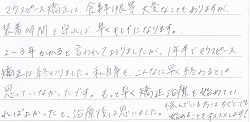 マウスピース矯正は、食事制限等 大変なこともありますが、
装着時間を守れば、早くキレイになります。
2〜3年かかると言われておりましたが、1年半でマウスピース
矯正は終わりました。私自身も、こんなに早く終わるとは
思っていなかったです。もっと早く矯正治療を始めてい
ればよかったと、治療後に思いました。悩んでいる方はすぐにでも
始めることをオススメします!